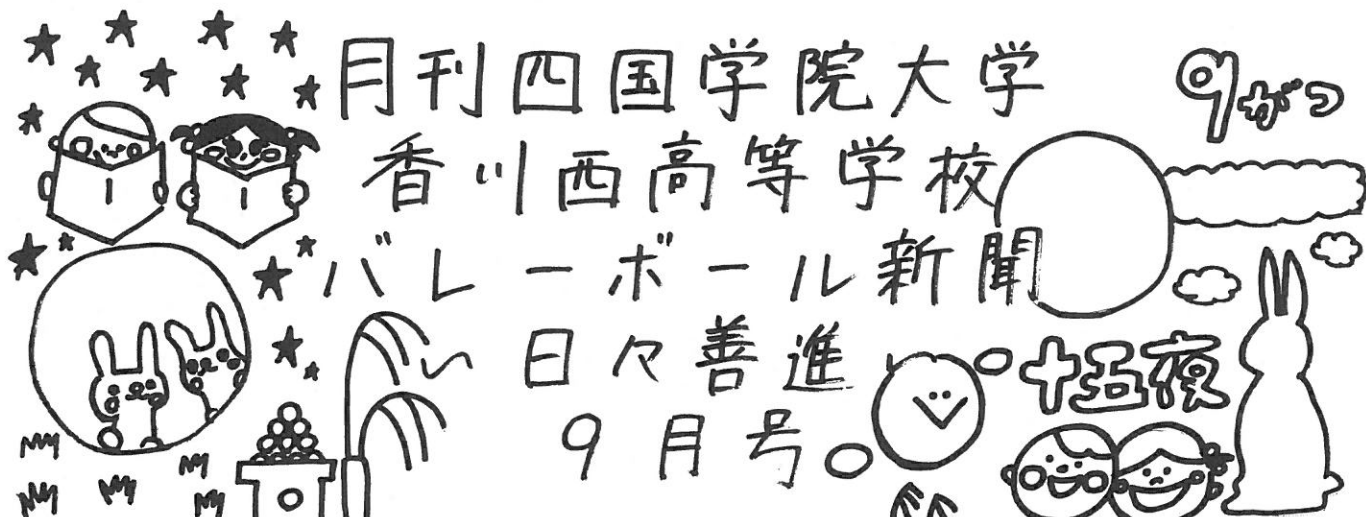 月刊四国学院大学
香川西高等学校
バレーボール新聞
〜日々善進
9月号
9がつ
十五夜